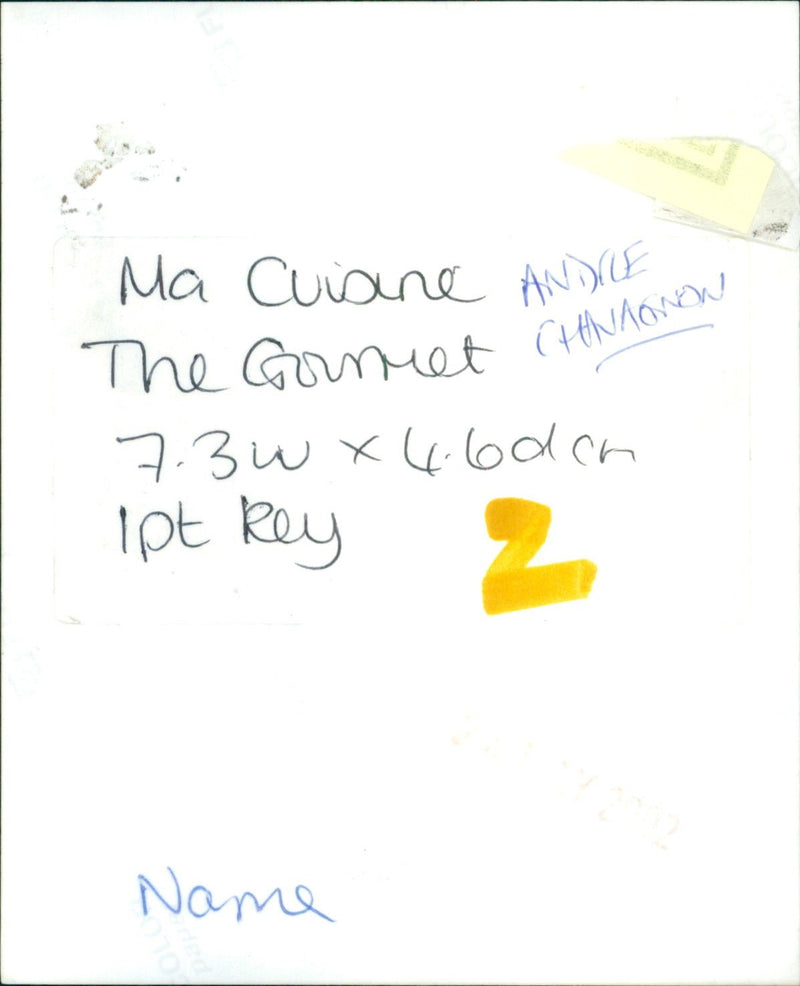 Ma Cuisine
The Gourmet
ANDRE
CHANAGNON
7.3w x 4.6d cm
1pt Key
2
Name